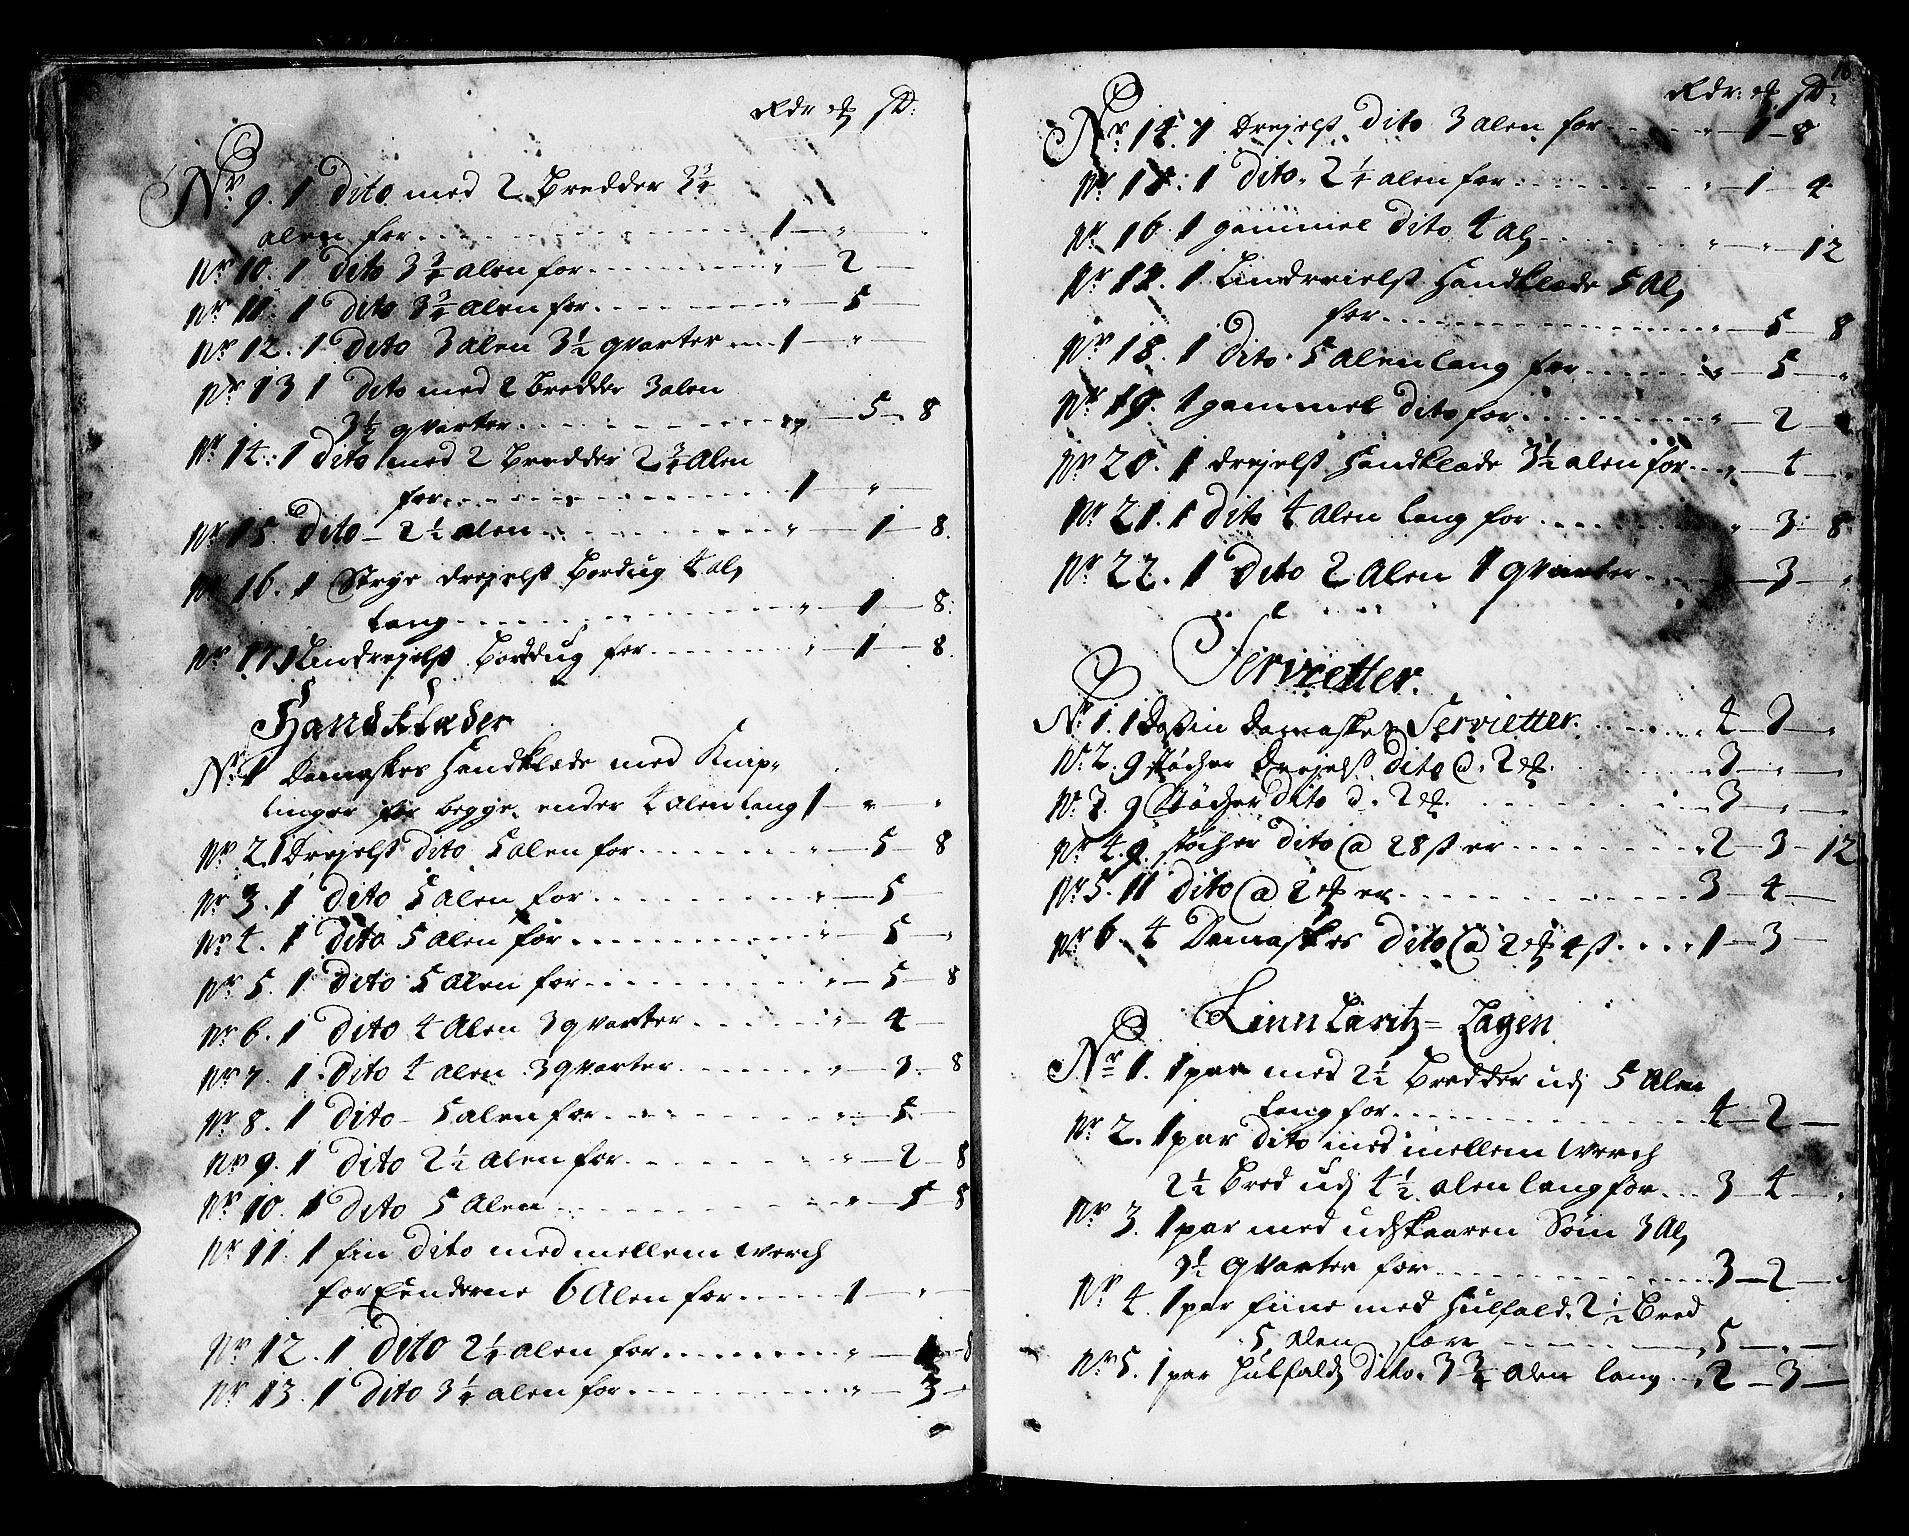 Rdr ꝝ ß:
Nr 9. 1 Dito med 2 Bredder 3¾
alen for 1 - " "
Nr 10. 1 Dito 3¾ alen for " - 2 -
Nr 11. 1 Dito 3¾ alen for " - 5
Nr 12. 1 Dito 3 alen 3½ qvarter 1 - "
Nr 13 1 Dito med 2 Bredder 3 alen
3½ qvarter " - 5 - 8
Nr 14: 1 Dito med 2 Bredder 2¾ Alen
for 1 - "
Nr 15. Dito - 2½ alen " - 1 - 8.
Nr 16. 1 Strye Drejels Bordug 4 al
lang " - 1 - 8:
Nr 17. 1 Lindrejels Bordug for " - 1 - 8.
Handklæder
Nr 1 Damaskes Handklæde med Knip-
linger for begge ender 4 alen lang 1 " "
Nr 2. 1 Drejels Dito 5 alen for " - 5 - 8
Nr 3. 1 Dito 5 Alen for " - 5 -
Nr 4. 1 Dito 5 Alen for " - 5 - "
Nr 5. 1 Dito 5 Alen for " - 5 - 8
Nr 6. 1 Dito 4 Alen 3 qvarter " - 4 -
Nr 7. 1 Dito 4 alen 3 qvarter " - 3 - 8
Nr 8. 1 Dito - 5 alen for " - 5 -
Nr 9. 1 Dito 2½ Alen for " - 2 - 8
Nr 10. 1 Dito 5 Alen " - 5 - 8
Nr 11. 1 fin Dito med mellem werch
for Eenderne 6 Alen for 1 - " -
Nr 12. 1 Dito 2¼ alen for " - 1 - 8
Nr 13. 1 Dito 3¼ alen for " - 3 -
Rdr: ꝝ ß:
Nr 14. 1 Drejels Dito 3 alen for " - 1 - 8
Nr 15: 1 Dito 2¼ alen for " - 1 - 4
Nr 16. 1 gammel Dito 4 al " - " - 12
Nr 17. 1 Lindreiels Handklæde 5 Al
for " - 5 - 8
Nr 18. 1 Dito 5 Alen lang for " - 5 - "
Nr 19. 1 gammel Dito for " - 2 -
Nr 20. 1 Drejels Handklæde 3½ alen for " - 4 -
Nr 21. 1 Dito 4 Alen lang for " - 3 - 8
Nr 22. 1 Dito 2 Alen 1 qvarter - 3 - "
Servietter.
Nr 1. 1 Dossin Damaskes Servietter. 4 - 3 - "
Nr 2. 9 støcher Drejels Dito @. 2 ꝝ. 3 - " -
Nr 3. 9 Støcher Dito a. 2 ꝝ. 3 - " -
Nr 4. 9. støcher Dito @ 28 ß er 2 - 3 - 12
Nr 5. 11 Dito @ 2 ꝝ er 3 - 4 -
Nr 6. 4 Damaskes Dito @ 2 ꝝ 4 ß 1 - 3 -
Linn Laritz = Lagen
Nr 1. 1 par med 2½ Bredder udj 5 Alen
lang for 4 - 2 -
Nr 2. 1 par Dito med mellem werch
2½ Bred udj 4½ alen lang for 3 - 4 - "
Nr 3. 1 par med udskaaren Søm 3 Al
3½ qvarter for 3 - 2 - "
Nr 4. 1 par fiine med Hulfald. 2½ Bred
5 Alen for 5 - " -
Nr 5. 1 par Hulfald Dito. 3¾ alen lang 2 - 3 -